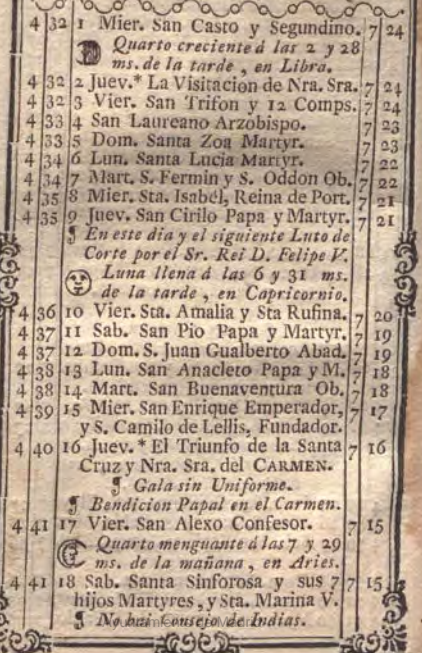 4 32 1 Mier. San Casto y Segundino. 7 24
Quarto creciente á las 2 y 28
ms. de la tarde, en Libra.
4 32 2 Juev.* La Visitacion de Nra. Sra. 7 24
4 32 3 Vier. San Trifon y 12 Comps. 7 24
4 33 4 San Laureano Arzobispo. 7 23
4 33 5 Dom. Santa Zoa Martyr. 7 23
4 34 6 Lun. Santa Lucia Martyr. 7 22
4 34 7 Mart. S. Fermin y S. Oddon Ob. 7 22
4 35 8 Mier. Sta. Isabél, Reina de Port. 7 21
4 35 9 Juev. San Cirilo Papa y Martyr. 7 21
¶ En este dia y el siguiente Luto de
Corte por el Sr. Rei D. Felipe V.
Luna llena á las 6 y 31 ms.
de la tarde, en Capricornio.
4 36 10 Vier. Sta. Amalia y Sta Rufina. 7 20
4 37 11 Sab. San Pio Papa y Martyr. 7 19
4 37 12 Dom. S. Juan Gualberto Abad. 7 19
4 38 13 Lun. San Anacleto Papa y M. 7 18
4 38 14 Mart. San Buenaventura Ob. 7 18
4 39 15 Mier. San Enrique Emperador, 7 17
y S. Camilo de Lellis, Fundador.
4 40 16 Juev. * El Triunfo de la Santa 7 16
Cruz y Nra. Sra. del CARMEN.
¶ Gala sin Uniforme.
¶ Bendicion Papal en el Carmen.
4 41 17 Vier. San Alexo Confesor. 7 15
Quarto menguante á las 7 y 29
ms. de la mañana, en Aries.
4 41 18 Sab. Santa Sinforosa y sus 7 7 15
hijos Martyres, y Sta. Marina V.
¶ No hai Consejo de Indias.